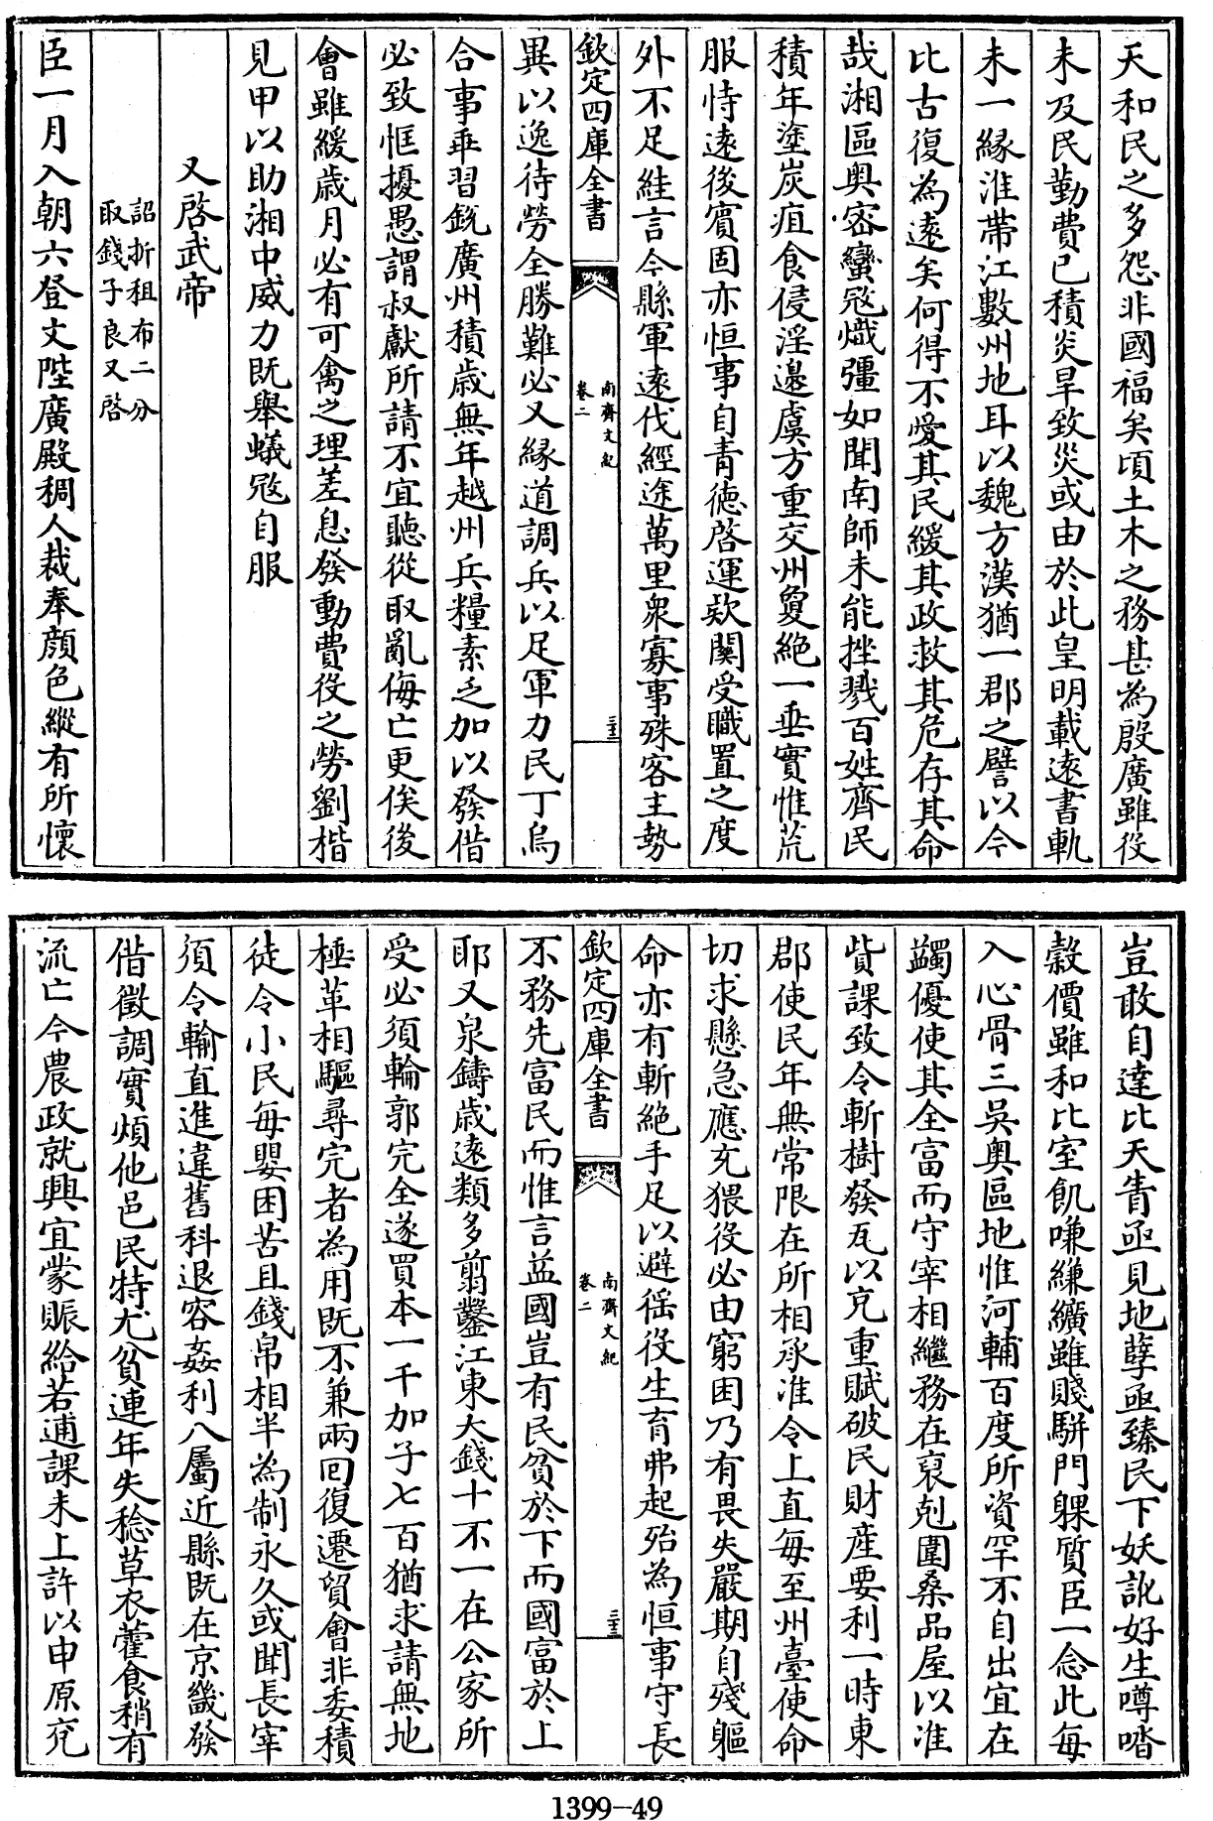 天和民之多怨非國福矣頃土木之務甚為殷廣雖役
未及民勤費已積炎旱致災或由於此皇明載逺書軌
未一縁淮帶江數州地耳以魏方漢猶一郡之譬以今
比古復為逺矣何得不愛其民緩其政救其危存其命
哉湘區奥宻蠻宼熾彊如聞南師未能挫戮百姓齊民
積年塗炭疽食侵淫邉虞方重交州夐絶一垂實惟荒
服恃逺後賓固亦恒事自青徳啓運欵闗受職置之度
外不足絓言今縣軍逺伐經途萬里衆寡事殊客主勢
欽定四庫全書
南齊文紀
卷二
三十二
異以逸待勞全勝難必又縁道調兵以足軍力民丁烏
合事乖習鋭廣州積歲無年越州兵糧素乏加以發借
必致恇擾愚謂叔獻所請不宜聽從取亂侮亡更俟後
會雖緩歲月必有可禽之理差息發動費役之勞劉楷
見甲以助湘中威力既舉蟻宼自服
又啓武帝
詔折租布二分
取錢子良又啓
臣一月入朝六登文陛廣殿稠人裁奉顔色縱有所懷
豈敢自達比天眚亟見地孽亟臻民下妖訛好生噂嗒
穀價雖和比室飢嗛縑纊雖賤駢門躶質臣一念此每
入心骨三吳奥區地惟河輔百度所資罕不自出宜在
蠲優使其全富而守宰相繼務在裒剋圍桑品屋以准
貲課致令斬樹發瓦以充重賦破民財産要利一時東
郡使民年無常限在所相承准令上直每至州臺使命
切求懸急應充猥役必由窮困乃有畏失嚴期自殘軀
命亦有斬絶手足以避徭役生育弗起殆為恒事守長
欽定四庫全書
南齊文紀
卷二
三十三
不務先富民而惟言益國豈有民貧於下而國富於上
耶又泉鑄歲逺類多翦鑿江東大錢十不一在公家所
受必須輪郭完全遂買本一千加子七百猶求請無地
棰革相驅尋完者為用既不兼兩囘復遷貿會非委積
徒令小民每嬰困苦且錢帛相半為制永久或聞長宰
須令輸直進違舊科退容姦利八屬近縣既在京畿發
借徵調實煩他邑民特尤貧連年失稔草衣藿食稍有
流亡今農政就興宜蒙賑給若逋課未上許以申原兖
1399-49